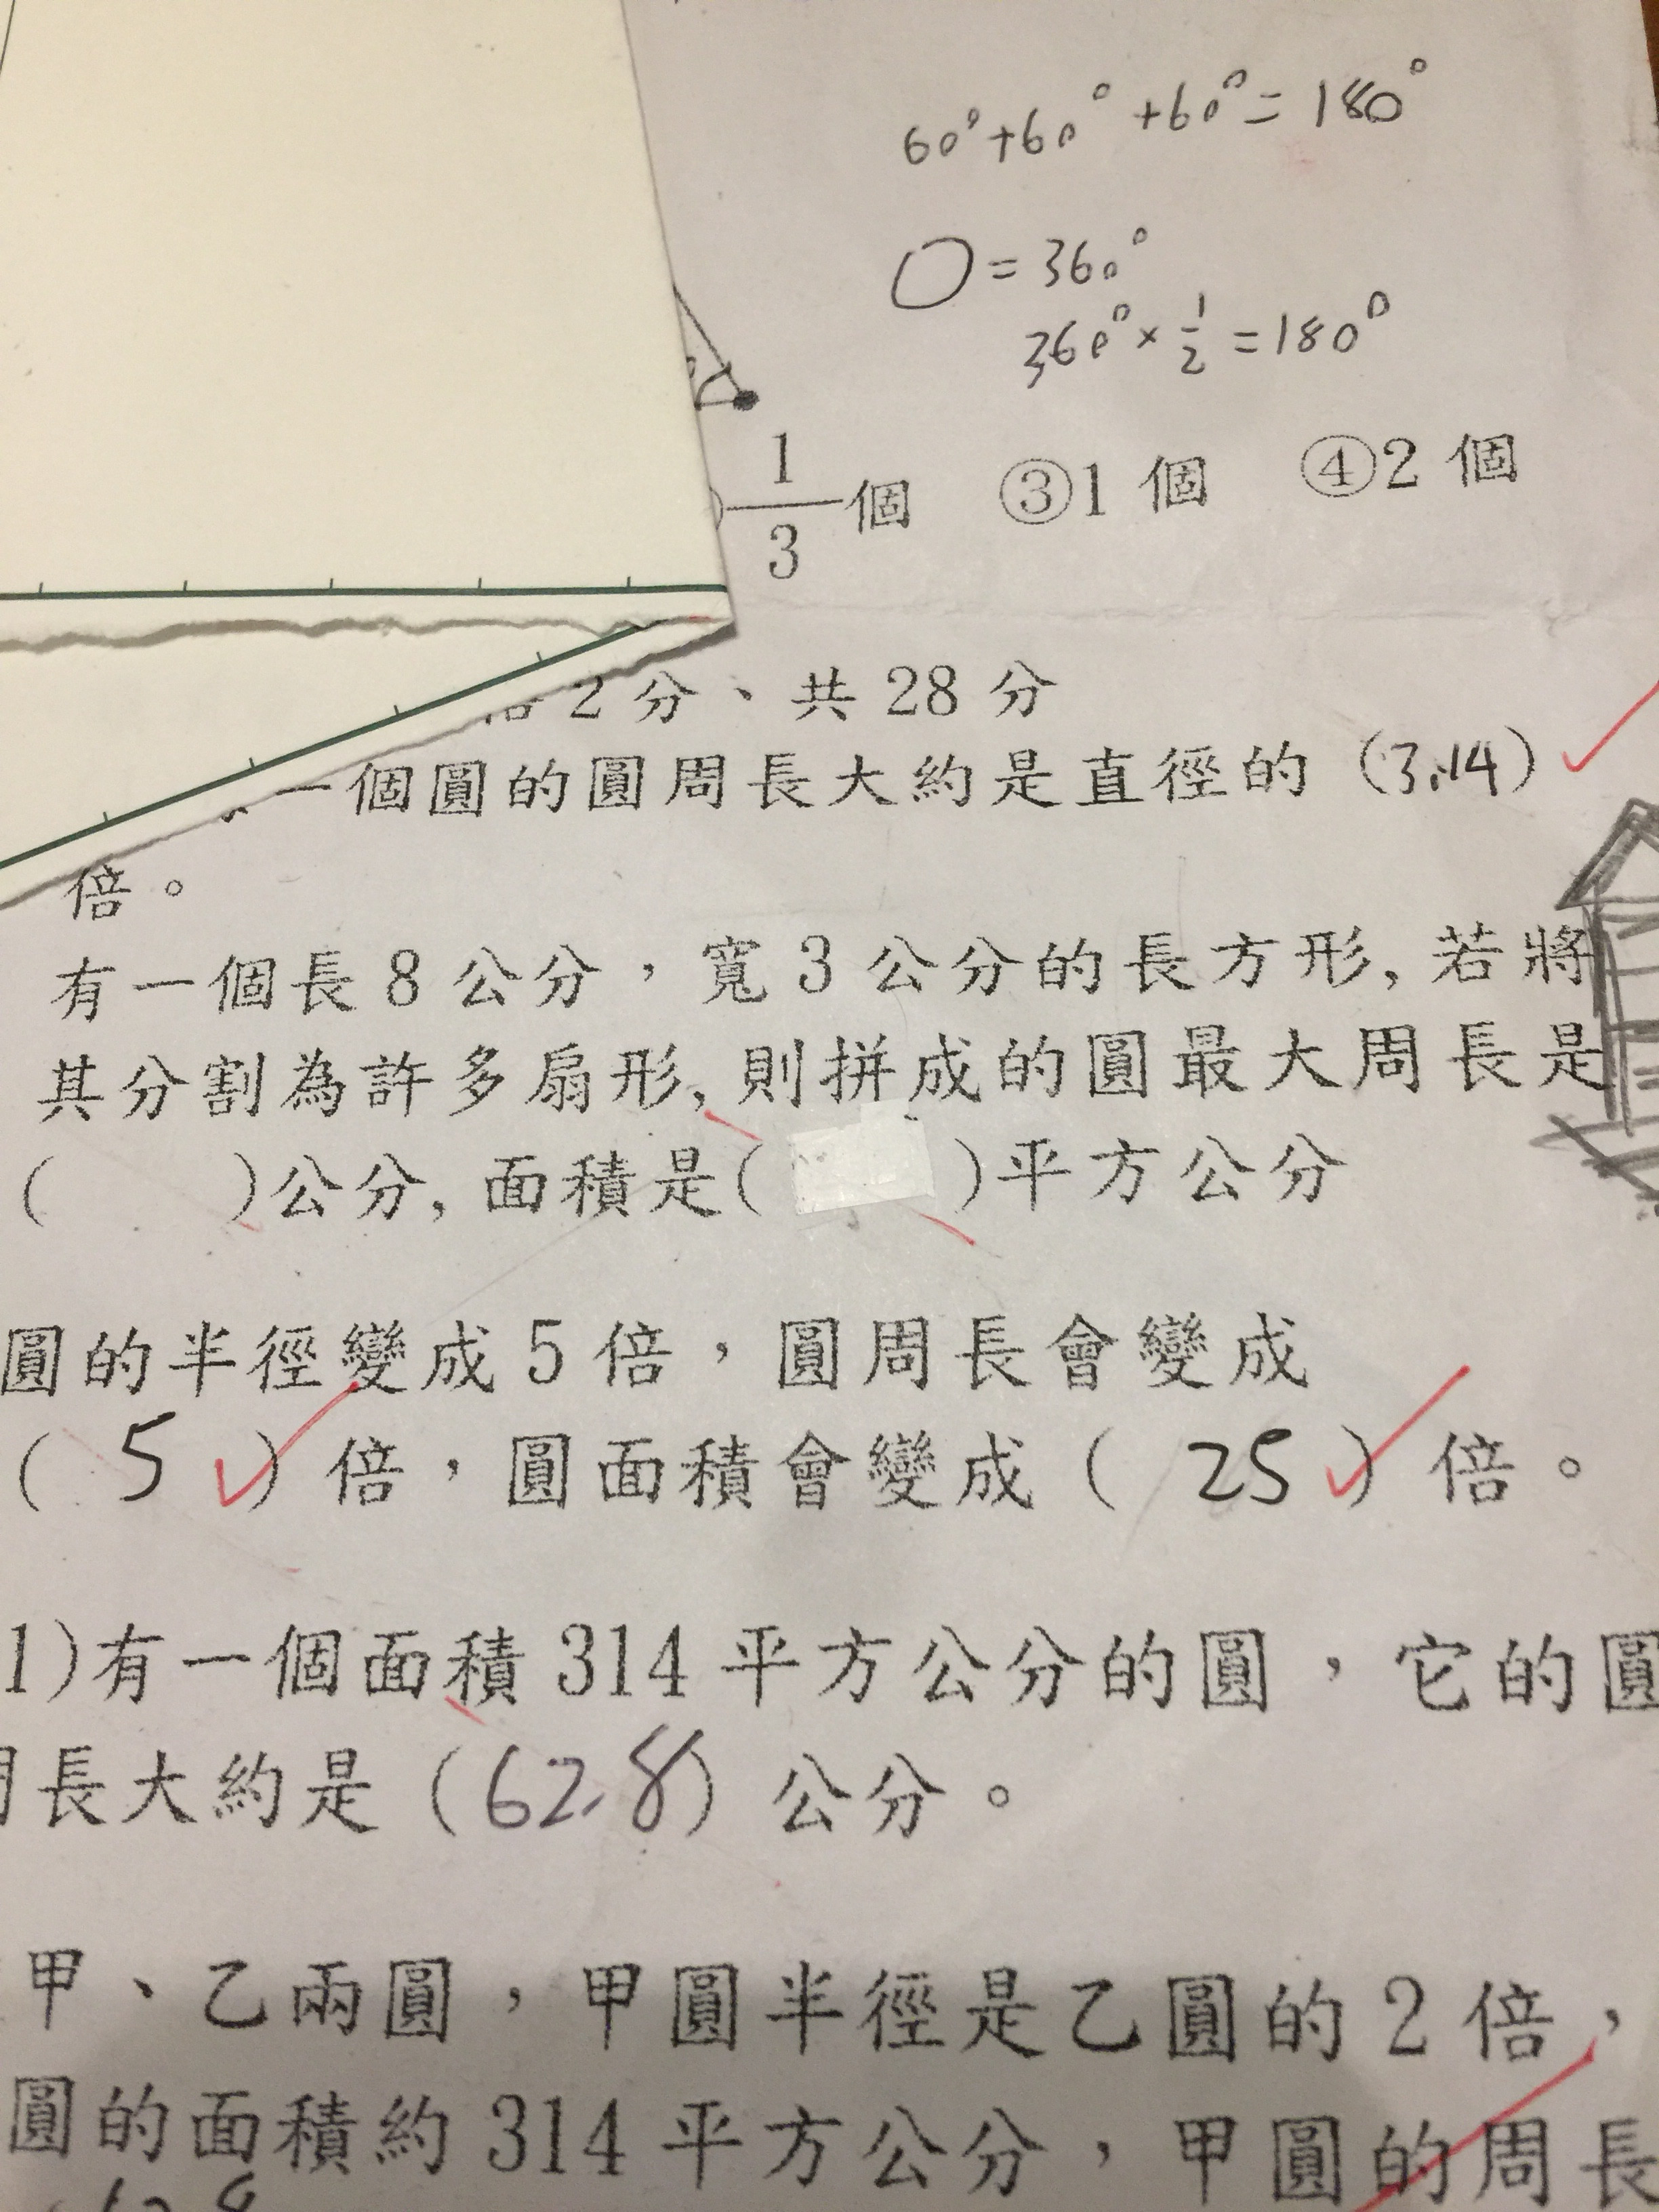 60°+60°+60°=180°
O=360°
360°×1/2=180°
1/3個 ③1個 ④2個
2分、共28分
一個圓的圓周長大約是直徑的(3.14)
倍。
有一個長8公分，寬3公分的長方形,若將
其分割為許多扇形,則拼成的圓最大周長是
( )公分,面積是( )平方公分
圓的半徑變成5倍，圓周長會變成
(5)倍，圓面積會變成(25)倍。
1)有一個面積314平方公分的圓，它的圓
周長大約是(62.8)公分。
甲、乙兩圓，甲圓半徑是乙圓的2倍，
圓的面積約314平方公分，甲圓的周長